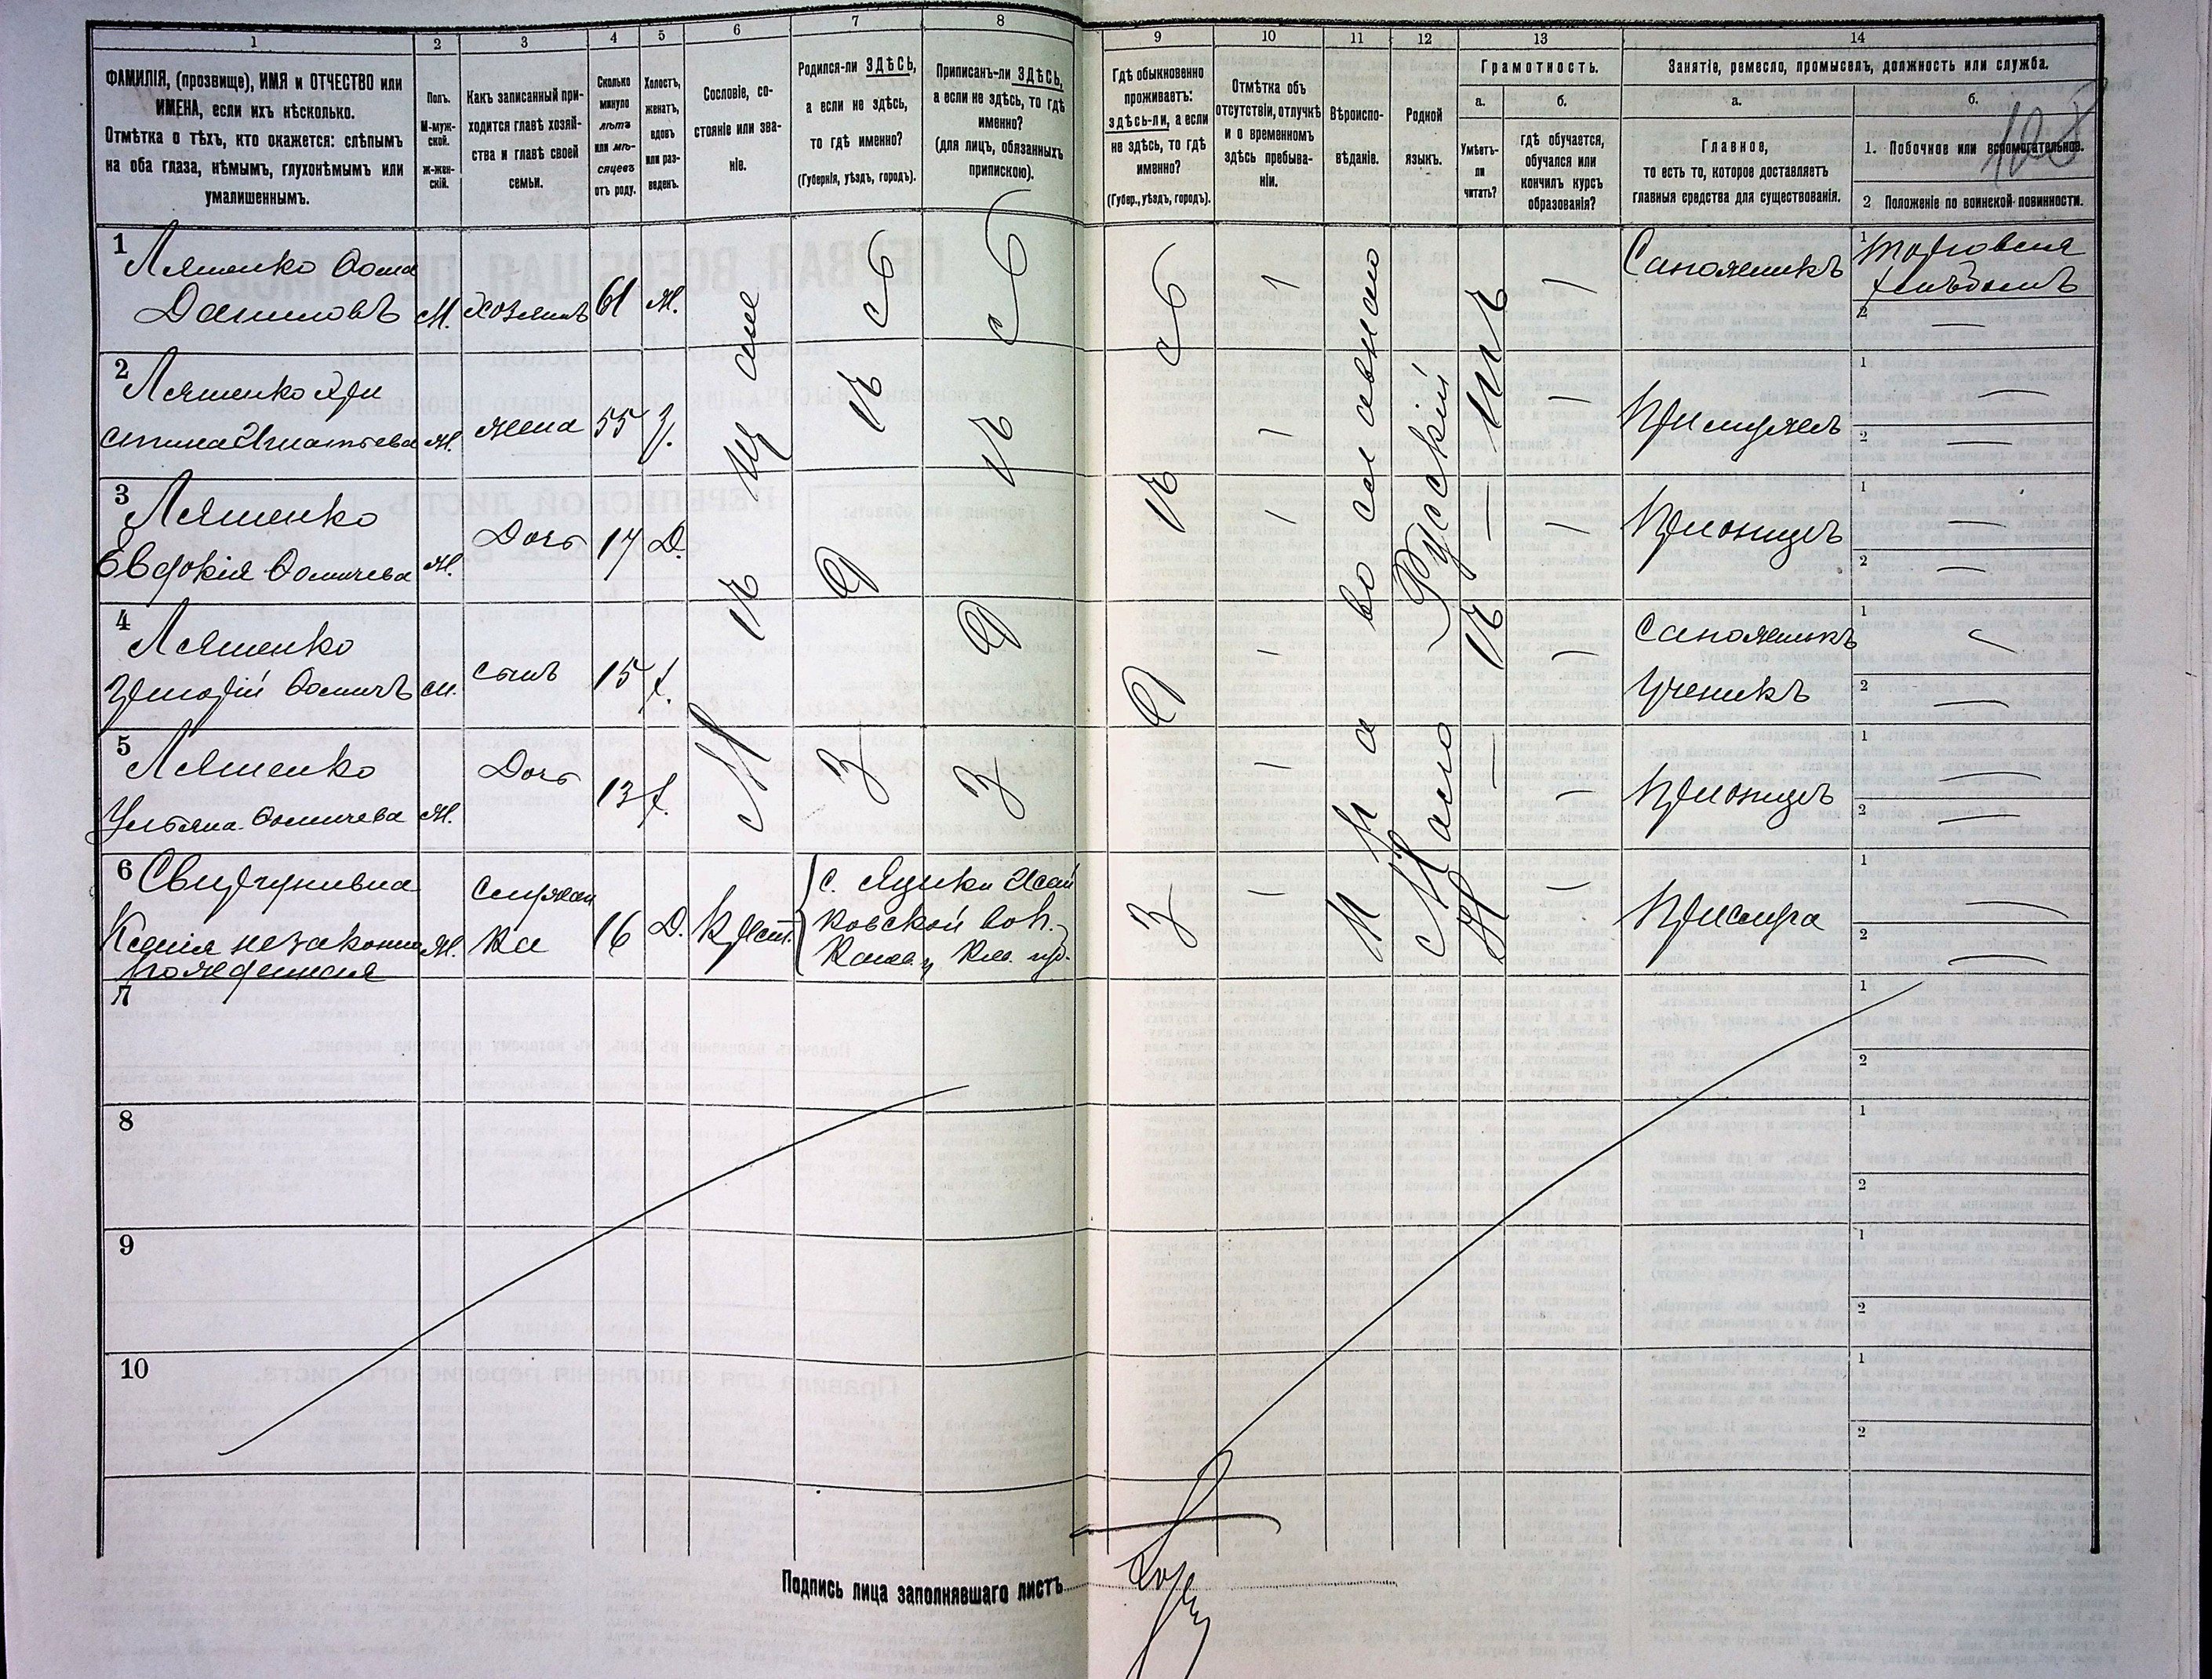 1 2 3 4 5 6 7 8 9 10 11 12 13 14
ФАМИЛІЯ, (прозвище), ИМЯ и ОТЧЕСТВО или
ИМЕНА, если ихъ нѣсколько.
Отмѣтка о тѣхъ, кто окажется: слѣпымъ
на оба глаза, нѣмымъ, глухонѣмымъ или
умалишеннымъ.
Полъ.
М-муж-
ской.
ж-жен-
скій.
Какъ записанный при-
ходится главѣ хозяй-
ства и главѣ своей
семьи.
Сколько
минуло
лѣтъ
или мѣ-
сяцевъ
отъ роду.
Холостъ,
женатъ,
вдовъ
или раз-
веденъ.
Сословіе, со-
стояніе или зва-
ніе.
Родился-ли ЗДѢСЬ,
а если не здѣсь,
то гдѣ именно?
(Губернія, уѣздъ, городъ).
Приписанъ-ли ЗДѢСЬ,
а если не здѣсь, то гдѣ
именно?
(для лицъ, обязанныхъ
припискою).
Гдѣ обыкновенно
проживаетъ:
здѣсь-ли, а если
не здѣсь, то гдѣ
именно?
(Губер., уѣздъ, городъ).
Отмѣтка объ
отсутствіи, отлучкѣ
и о временномъ
здѣсь пребыва-
ніи.
Вѣроиспо-
вѣданіе.
Родной
языкъ.
Грамотность.
а.
Умѣетъ-
ли
читать?
б.
гдѣ обучается,
обучался или
кончилъ курсъ
образованія?
Занятіе, ремесло, промыселъ, должность или служба.
а.
Главное,
то есть то, которое доставляетъ
главныя средства для существованія.
б.
1. Побочное или вспомогательное.
2 Положеніе по воинской повинности.
1 Ляшенко Ѳома
Даниловъ М. хозяинъ 61 Ж.
Сапожникъ
Торговля
хлѣбомъ
2 Ляшенко Хри
стина Игнатьева Ж. жена 55 З.
При мужѣ
3 Ляшенко
Евдокія Ѳомичева Ж. Дочь 17 Д.
При отцѣ
4 Ляшенко
Ѳомичъ М. сынъ 15 х.
Сапожникъ
Ученикъ
5 Ляшенко
Ульяна Ѳомичева Ж. Дочь 13
При отцѣ
6
Ксенія незаконно
рожденная Ж. Служан
ка 16 Д. Крест.
с. Яцики Исай
ковской вол.
Канев. у Кіев. губ.
Прислуга
Мѣщане
Здѣсь
Здѣсь
Здѣсь
Православное
Малорусскій
Нѣтъ
7
8
9
10
Подпись лица заполнявшаго листъ